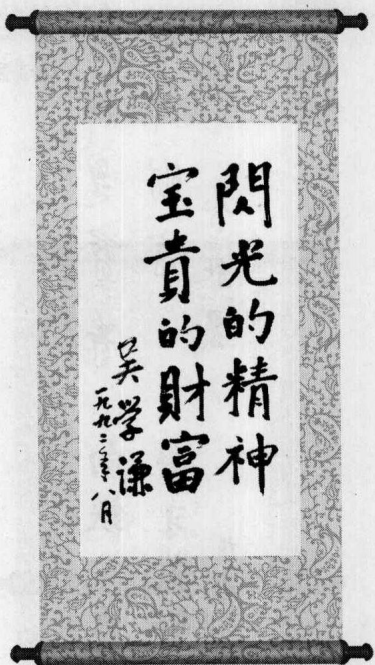 閃光的精神
宝貴的財富
吴学谦
一九九二年八月